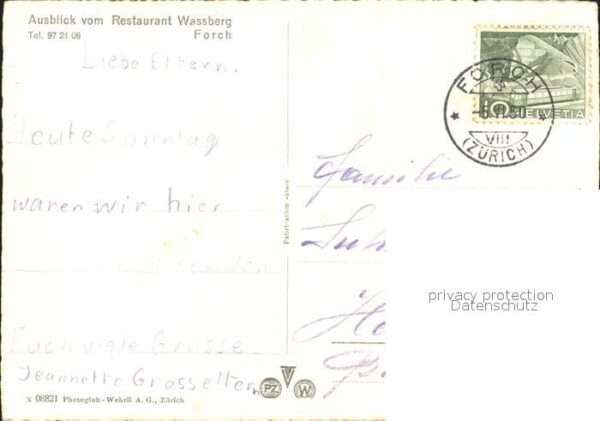 Ausblick vom Restaurant Wassberg
Tel. 97 21 06 Forch
Liebe Eltern.
Heute Sonntag
waren wir hier
Euch viele Grüsse
Jeannette Grosseltern
x 08821 Photoglob-Wehrli A. G., Zürich
PZ W
10 HELVETIA
FORCH
VIII
(ZÜRICH)
Familie
privacy protection
Datenschutz